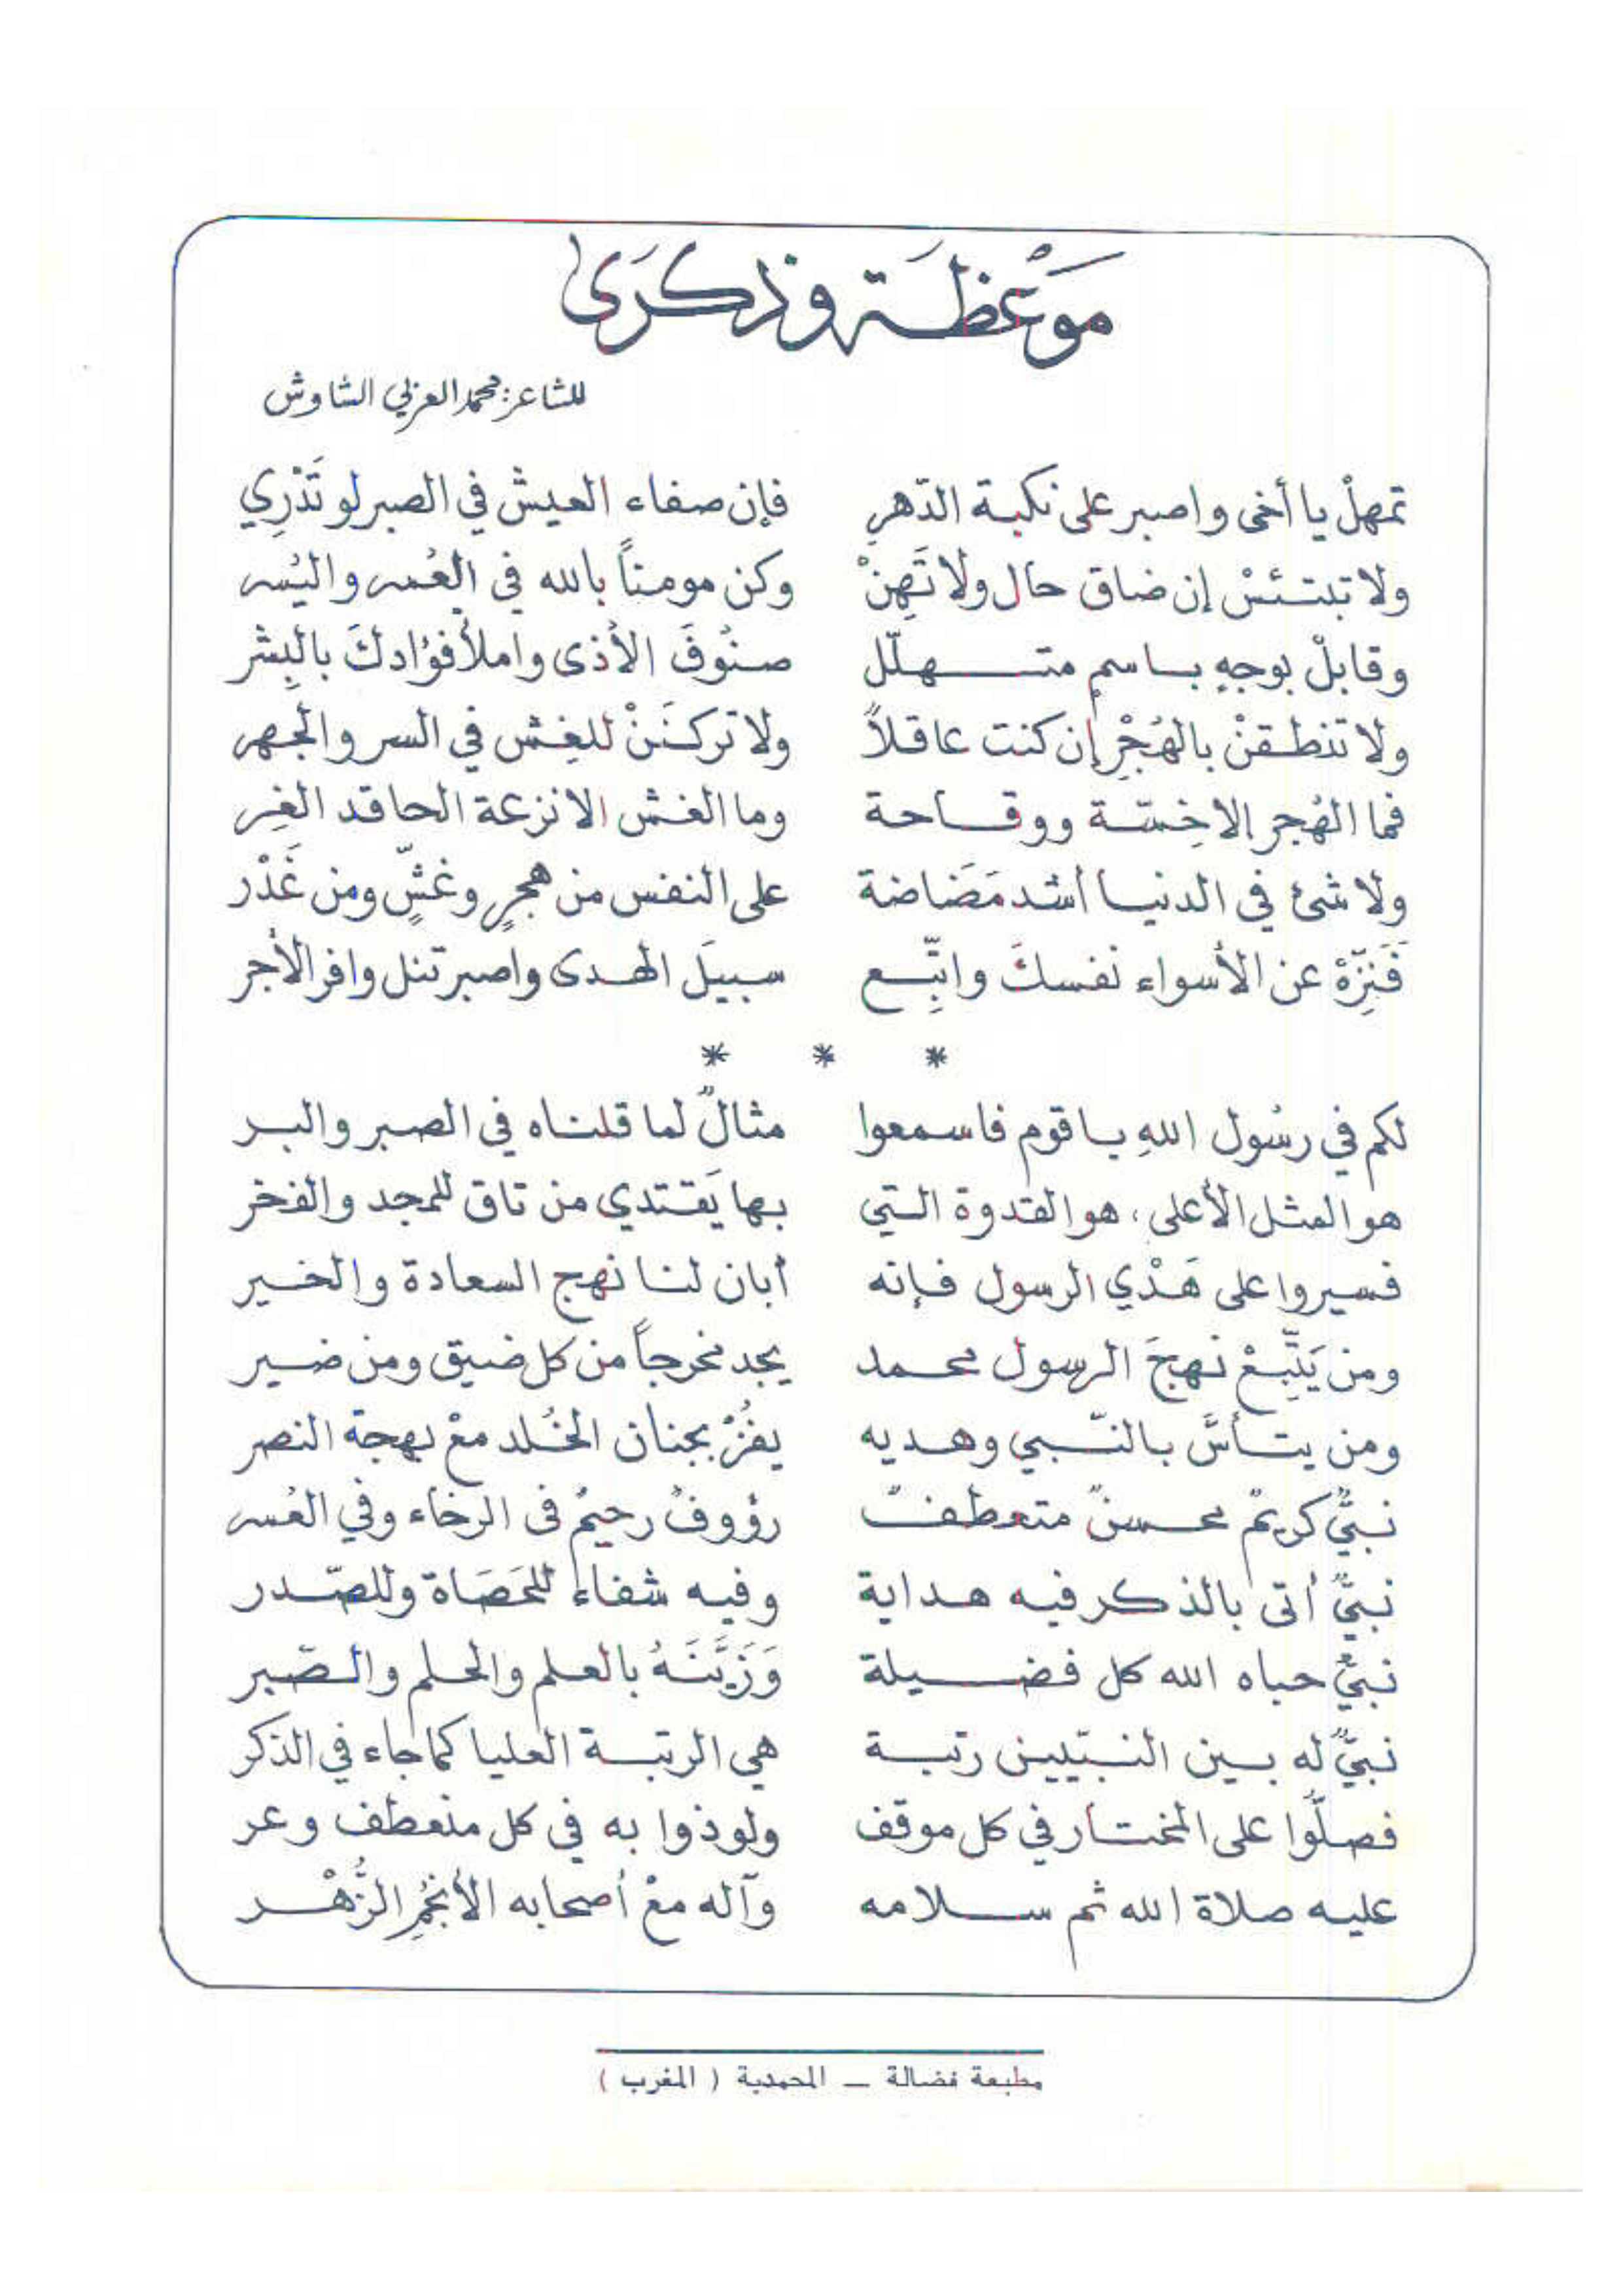 مَوْعِظَة وذكرَى
للشاعر: محمد العربي الشاوش
تمهلْ يا أخي واصبر على نكبة الدّهرِ فإن صفاء العيش في الصبر لو تَدْرِي
ولا تبتئسْ إن ضاق حال ولا تَهِنْ وكن مومناً بالله في العُسر واليُسر
وقابلْ بوجهٍ باسمٍ متهلّل صنُوفَ الأذى واملأ فؤادكَ بالبِشر
ولا تنطقنْ بالهُجْرِ إن كنت عاقلاً ولا تركنَنْ للغِش في السر والجهر
فما الهُجر إلا خِسّة ووقاحة وما الغش الا نزعة الحاقد الغِر
ولا شئ في الدنيا أشد مَضَاضة على النفس من هجرٍ وغشٍّ ومن غَدْر
فَنَزِّهْ عن الأسواء نفسكَ واتّبِع سبيلَ الهدى واصبر تنل وافر الأجر
* * *
لكم في رسُول اللهِ يا قوم فاسمعوا مثالٌ لما قلناه في الصبر والبر
هو المثل الأعلى، هو القدوة التي بها يَقتدي من تاق للمجد والفخر
فسيروا على هَدْي الرسول فإنه أبان لنا نهج السعادة والخير
ومن يَتَّبِعْ نهجَ الرسول محمد يجد مخرجاً من كل ضيق ومن ضير
ومن يتأسَّ بالنّبي وهديه يفُزْ بجنان الخُلد معْ بهجة النصر
نبيٌّ كريمٌ محسنٌ متعطفٌ رؤوفٌ رحيمٌ في الرخاء وفي العُسر
نبيٌّ أتى بالذكر فيه هداية وفيه شفاء للحَصَاة وللصّدر
نبيٌّ حباه الله كل فضيلة وَزَيَّنَهُ بالعلم والحلم والصّبر
نبيٌّ له بين النبيّين رتبة هي الرتبة العليا كما جاء في الذكر
فصلُّوا على المختار في كل موقف ولوذوا به في كل منعطف وعر
عليه صلاة الله ثم سلامه وآله معْ أصحابه الأنجُمِ الزُّهْر
مطبعة فضالة – المحمدية ( المغرب )